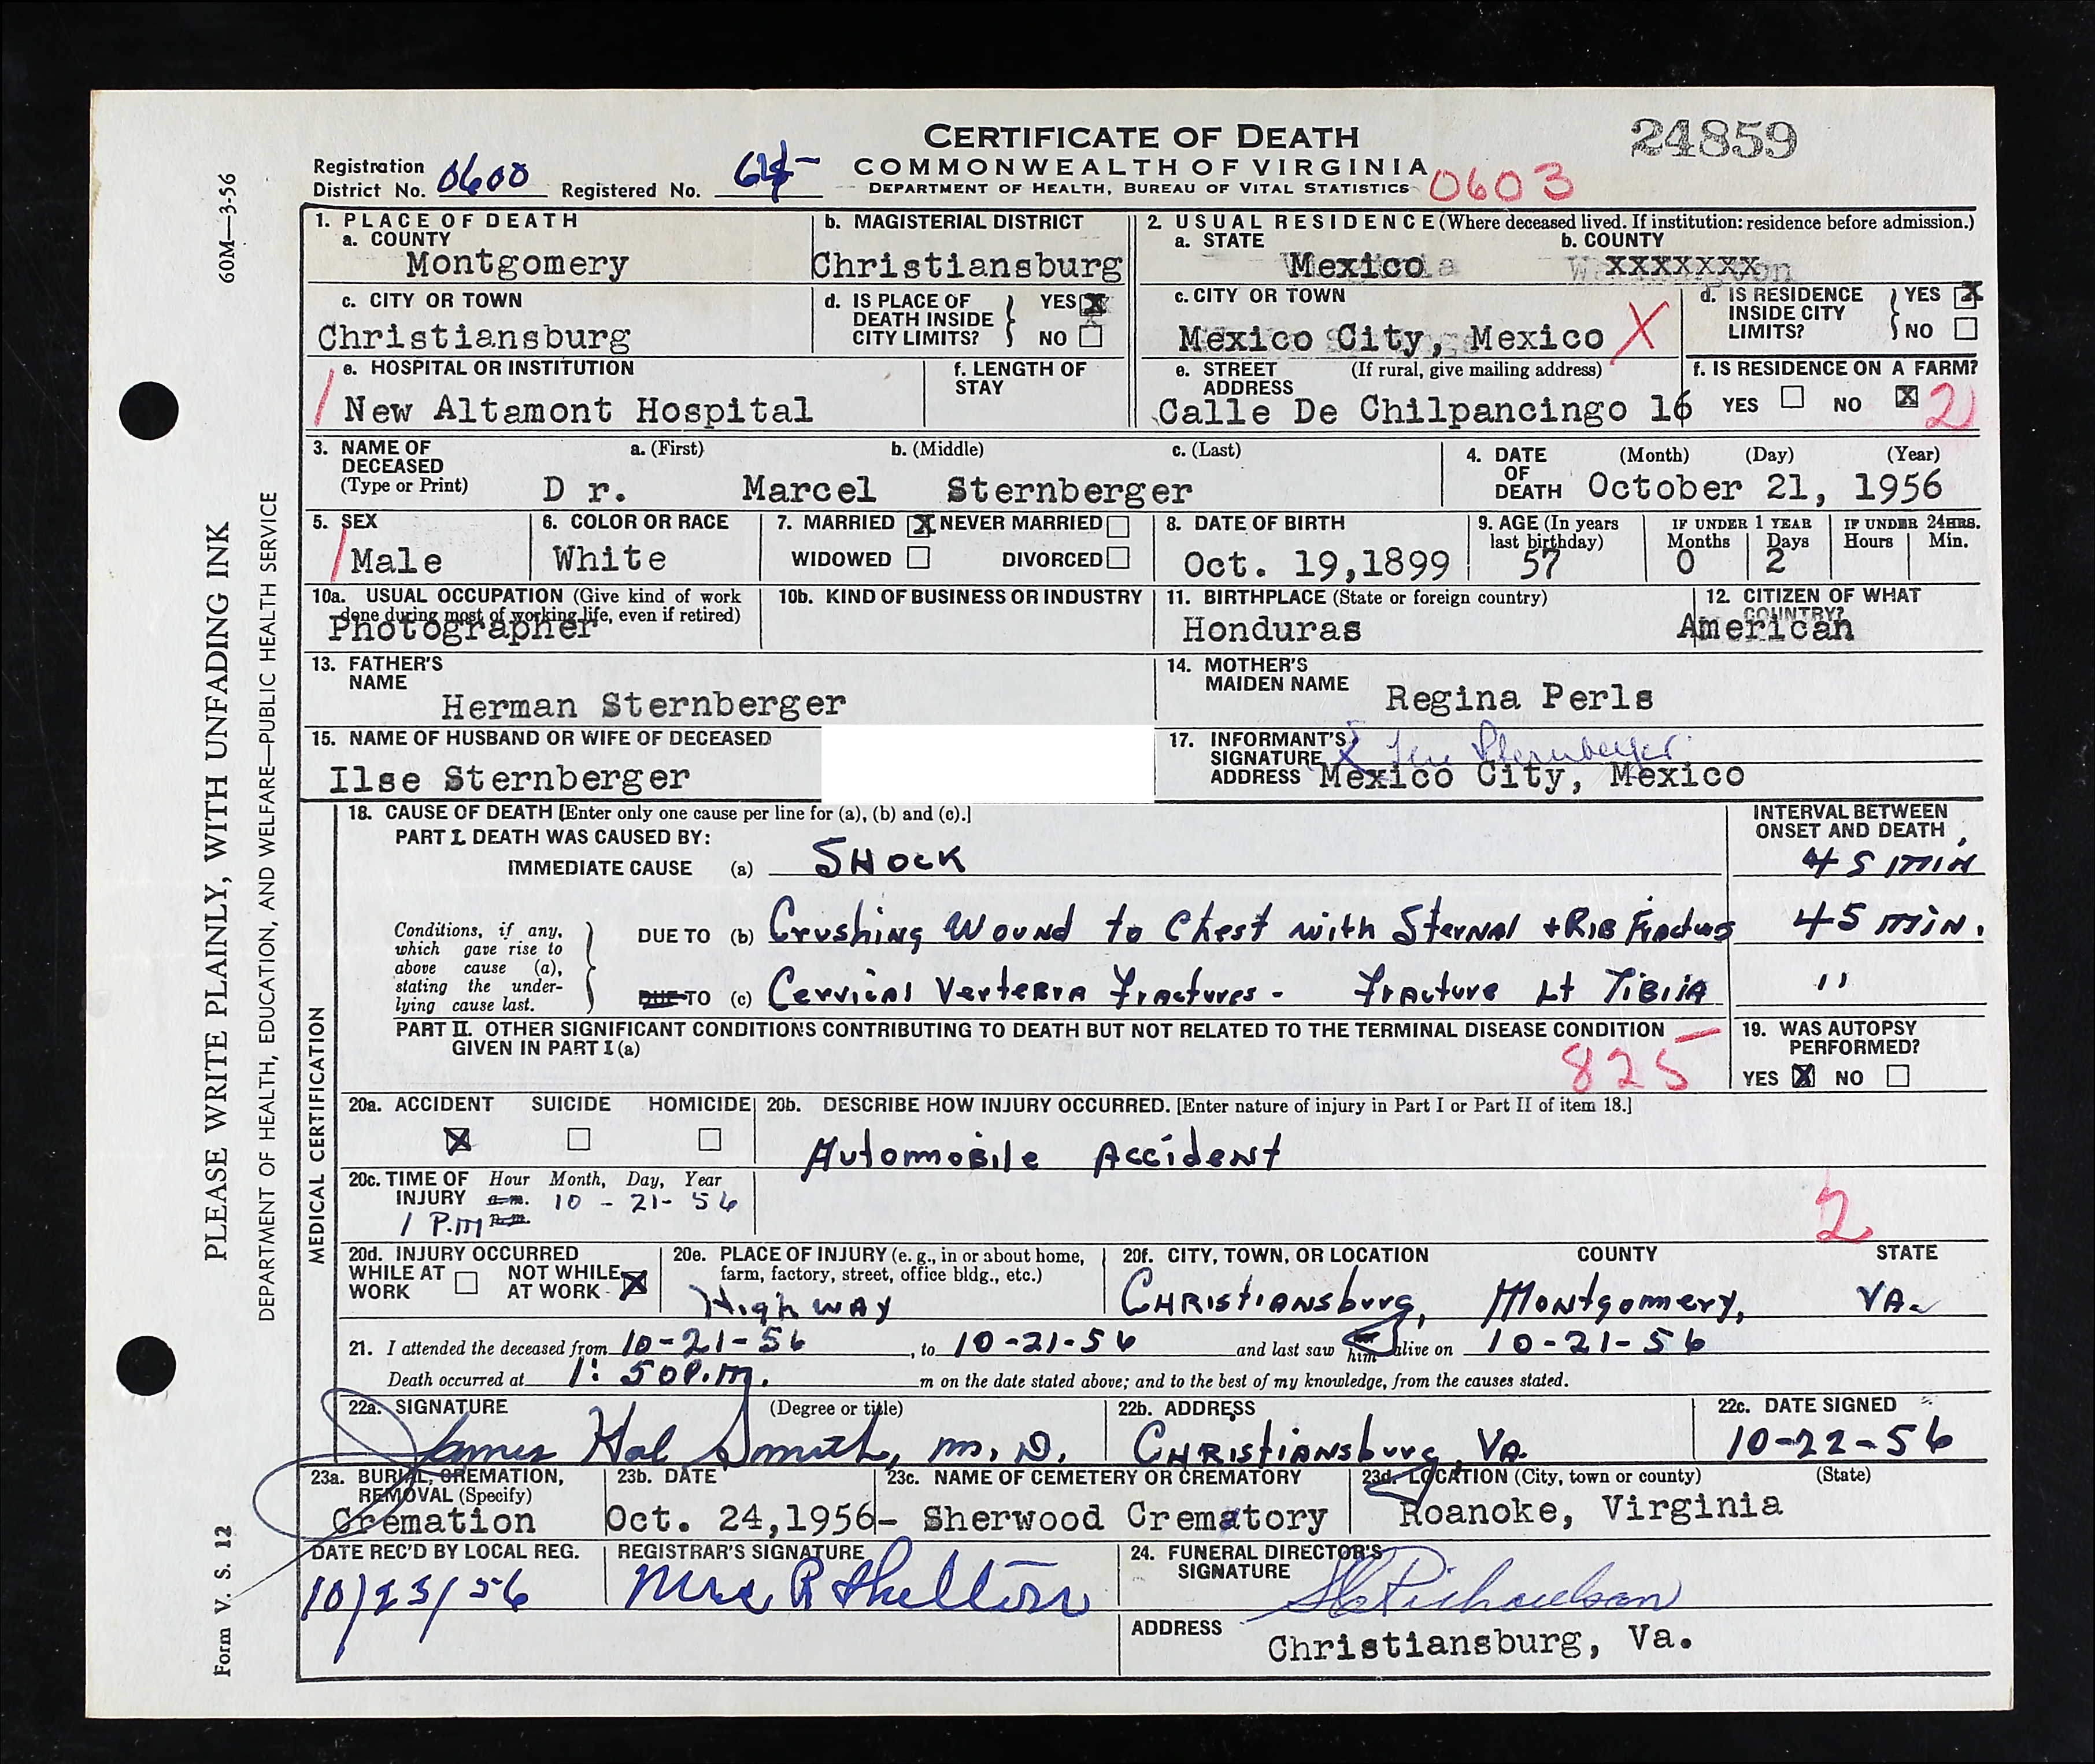 24859
CERTIFICATE OF DEATH
COMMONWEALTH OF VIRGINIA
DEPARTMENT OF HEALTH, BUREAU OF VITAL STATISTICS
0603
Registration
District No. 0600 Registered No.
60M—3-56
PLEASE WRITE PLAINLY, WITH UNFADING INK
DEPARTMENT OF HEALTH, EDUCATION, AND WELFARE—PUBLIC HEALTH SERVICE
Form V. S. 12
1. PLACE OF DEATH
a. COUNTY
Montgomery
b. MAGISTERIAL DISTRICT
Christiansburg
2. USUAL RESIDENCE (Where deceased lived. If institution: residence before admission.)
a. STATE
Mexico
b. COUNTY
xxxxxxx
c. CITY OR TOWN
Christiansburg
d. IS PLACE OF DEATH INSIDE CITY LIMITS? YES X NO
c. CITY OR TOWN
Mexico City, Mexico X
d. IS RESIDENCE INSIDE CITY LIMITS? YES X NO
e. HOSPITAL OR INSTITUTION
New Altamont Hospital
f. LENGTH OF STAY
e. STREET ADDRESS (If rural, give mailing address)
Calle De Chilpancingo 16
f. IS RESIDENCE ON A FARM?
YES NO X 2
3. NAME OF DECEASED (Type or Print)
a. (First) b. (Middle) c. (Last)
D r. Marcel Sternberger
4. DATE OF DEATH (Month) (Day) (Year)
October 21, 1956
5. SEX
Male
6. COLOR OR RACE
White
7. MARRIED X NEVER MARRIED
WIDOWED DIVORCED
8. DATE OF BIRTH
Oct. 19,1899
9. AGE (In years last birthday)
57
IF UNDER 1 YEAR
Months Days
0 2
IF UNDER 24HRS.
Hours Min.
10a. USUAL OCCUPATION (Give kind of work done during most of working life, even if retired)
Photographer
10b. KIND OF BUSINESS OR INDUSTRY
11. BIRTHPLACE (State or foreign country)
Honduras
12. CITIZEN OF WHAT COUNTRY?
American
13. FATHER'S NAME
Herman Sternberger
14. MOTHER'S MAIDEN NAME
Regina Perls
15. NAME OF HUSBAND OR WIFE OF DECEASED
Ilse Sternberger
17. INFORMANT'S SIGNATURE X Ilse Sternberger
ADDRESS Mexico City, Mexico
MEDICAL CERTIFICATION
18. CAUSE OF DEATH [Enter only one cause per line for (a), (b) and (c).]
INTERVAL BETWEEN ONSET AND DEATH
PART I. DEATH WAS CAUSED BY:
IMMEDIATE CAUSE (a) SHOCK 45 MIN
Conditions, if any, which gave rise to above cause (a), stating the underlying cause last.
DUE TO (b) Crushing Wound to Chest with Sternal + Rib Fractures 45 min.
DUE TO (c) Cervical Vertebra Fractures - Fracture Lt Tibia "
PART II. OTHER SIGNIFICANT CONDITIONS CONTRIBUTING TO DEATH BUT NOT RELATED TO THE TERMINAL DISEASE CONDITION GIVEN IN PART I (a)
825
19. WAS AUTOPSY PERFORMED?
YES X NO
20a. ACCIDENT X SUICIDE HOMICIDE
20b. DESCRIBE HOW INJURY OCCURRED. [Enter nature of injury in Part I or Part II of item 18.]
Automobile Accident
20c. TIME OF INJURY Hour Month, Day, Year
a.m. 10 - 21 - 56
1 P.M p.m.
2
20d. INJURY OCCURRED
WHILE AT WORK NOT WHILE AT WORK X
20e. PLACE OF INJURY (e. g., in or about home, farm, factory, street, office bldg., etc.)
Highway
20f. CITY, TOWN, OR LOCATION COUNTY STATE
Christiansburg, Montgomery, VA.
21. I attended the deceased from 10-21-56, to 10-21-56 and last saw him alive on 10-21-56
Death occurred at 1:50 P.m. m on the date stated above; and to the best of my knowledge, from the causes stated.
22a. SIGNATURE (Degree or title)
James Hal Smith, M.D.
22b. ADDRESS
Christiansburg VA
22c. DATE SIGNED
10-22-56
23a. BURIAL, CREMATION, REMOVAL (Specify)
Cremation
23b. DATE
Oct. 24,1956-
23c. NAME OF CEMETERY OR CREMATORY
Sherwood Crematory
23d. LOCATION (City, town or county) (State)
Roanoke, Virginia
DATE REC'D BY LOCAL REG.
10/23/56
REGISTRAR'S SIGNATURE
Mrs R Shelton
24. FUNERAL DIRECTOR'S SIGNATURE
Richardson
ADDRESS
Christiansburg, Va.